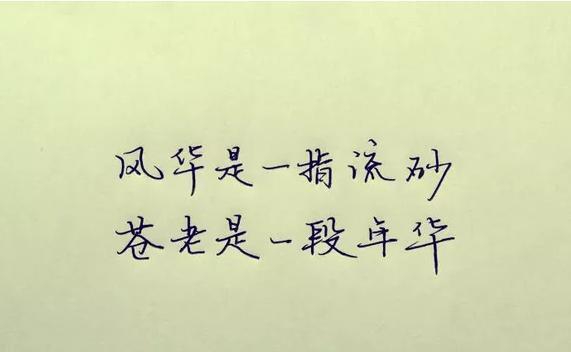 风华是一指流砂
苍老是一段年华